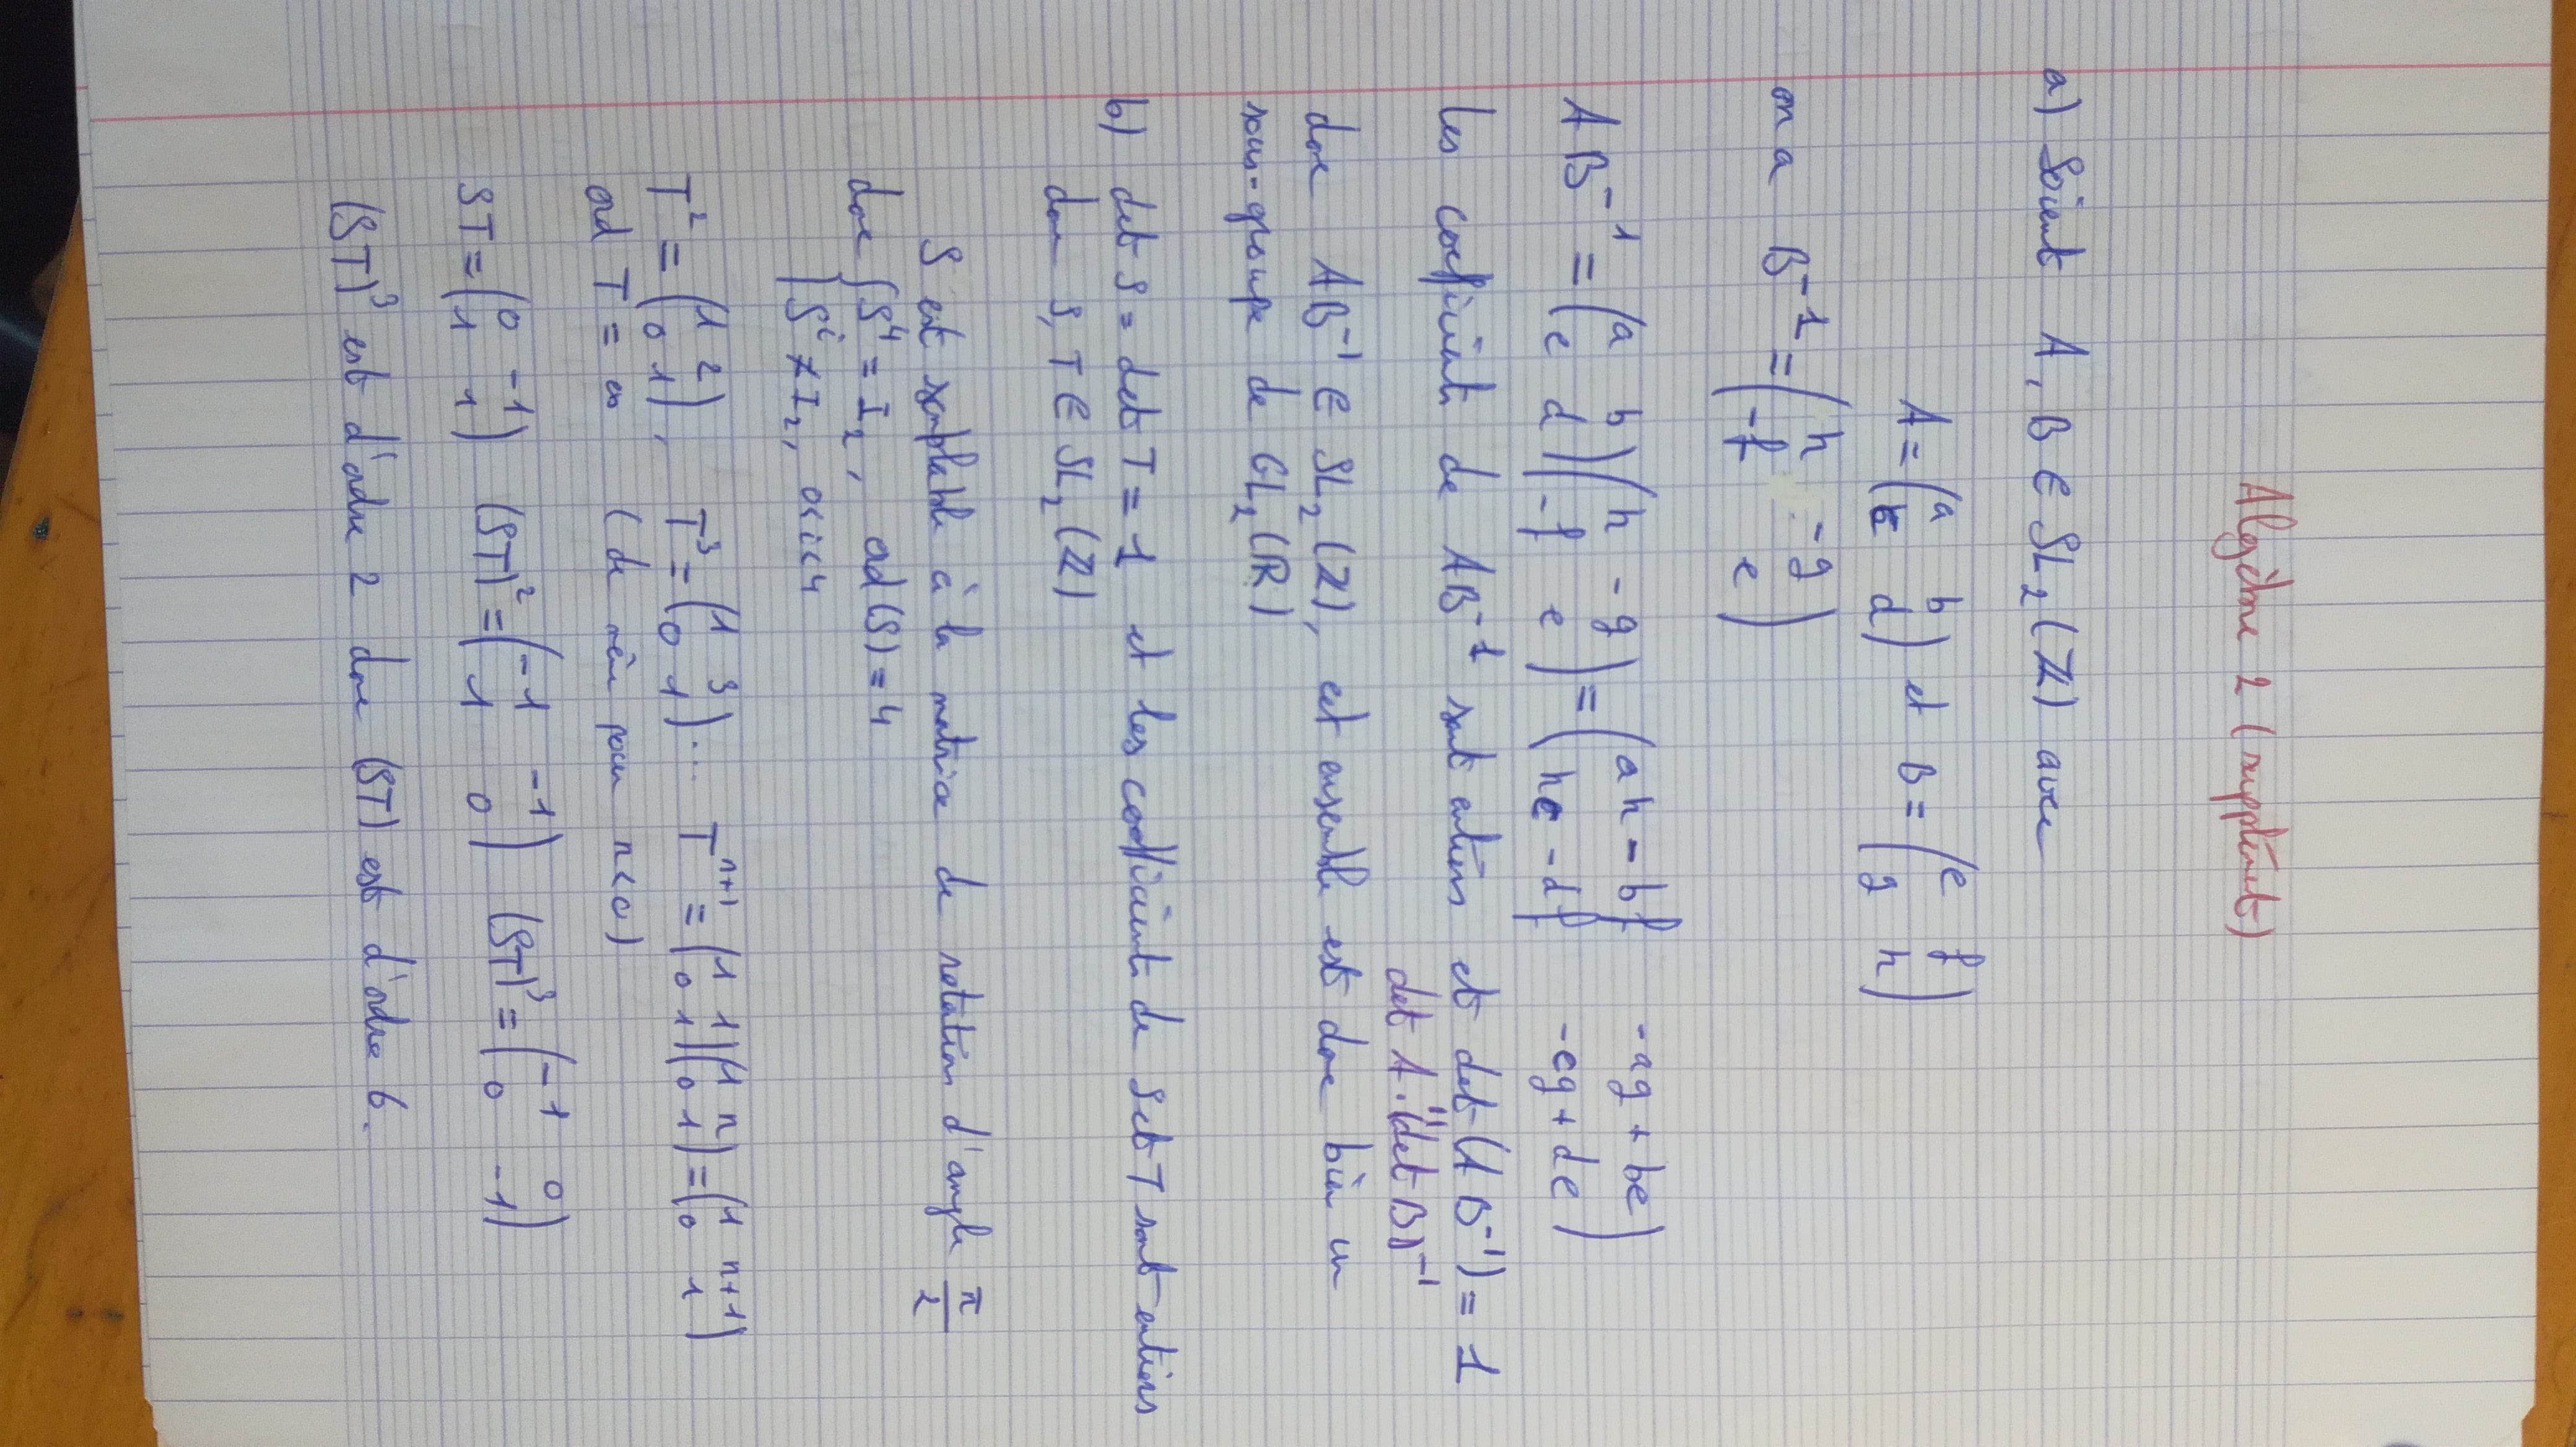 Algèbre 2 (supplément)
a) Soient A, B ∈ SL₂(ℤ) avec
A = (a b / c d) et B = (e f / g h)
on a B⁻¹ = (h -g / -f e)
AB⁻¹ = (a b / c d)(h -g / -f e) = (ah - bf -ag + be / hc - df -cg + de)
Les coefficients de AB⁻¹ sont entiers et det(AB⁻¹) = 1
det A · (det B)⁻¹
donc AB⁻¹ ∈ SL₂(ℤ), cet ensemble est donc bien un
sous-groupe de GL₂(ℝ)
b) det S = det T = 1 et les coefficients de S et T sont entiers
donc S, T ∈ SL₂(ℤ)
S est semblable à la matrice de rotation d'angle π/2
donc { S⁴ = I₂, ord(S) = 4
Sⁱ ≠ I₂, 0<i<4
T² = (1 2 / 0 1), T³ = (1 3 / 0 1)... Tⁿ⁺¹ = (1 1 / 0 1)(1 n / 0 1) = (1 n+1 / 0 1)
ord T = ∞ (de même pour n<0)
ST = (0 -1 / 1 1) (ST)² = (-1 -1 / 1 0) (ST)³ = (-1 0 / 0 -1)
(ST)³ est d'ordre 2 donc (ST) est d'ordre 6.